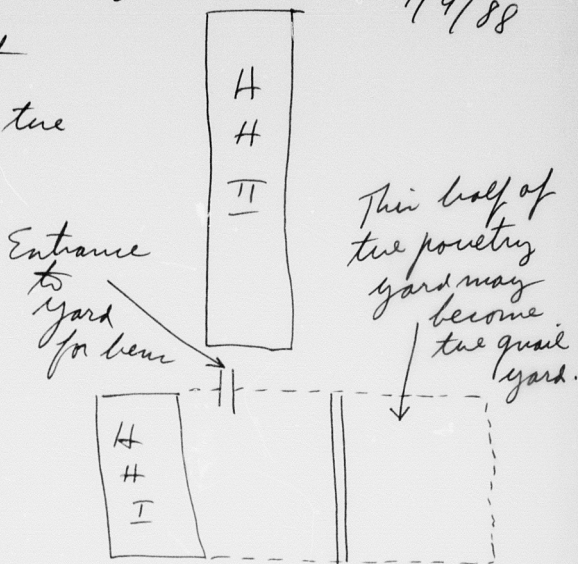 7/9/88
the
H
H
II
Entrance
to
yard
for hens
This half of
the poultry
yard may
become
the quail
yard.
H
H
I